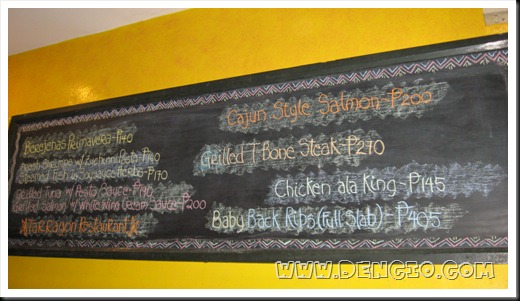 Berejenas Primavera - ₱140
w/ Zucchini Pasta - ₱190
Steamed Fish w/ Soysauce & Herbs - ₱170
Grilled Tuna w/ Pesto Sauce - ₱190
Grilled Salmon w/ White Wine Cream Sauce - ₱200
Restaurant
Cajun Style Salmon - ₱200
Grilled T Bone Steak - ₱270
Chicken ala King - ₱145
Baby Back Ribs (Full Slab) - ₱405
www.dencio.com